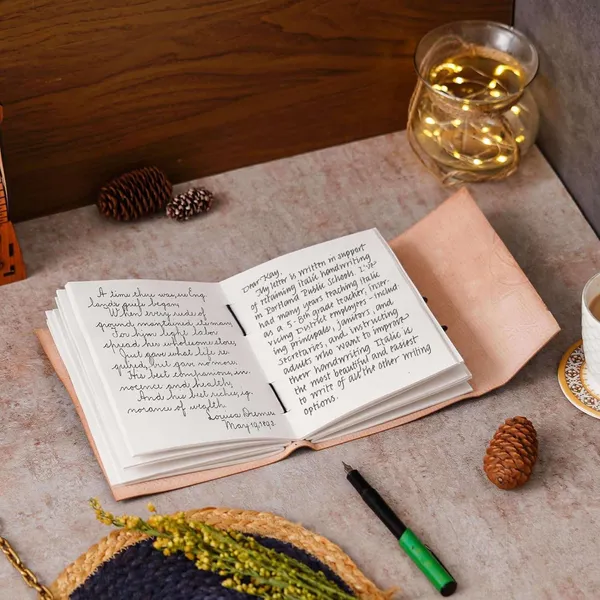 A time there was, ere Eng-
land's griefs began,
When every rude of
ground maintained its man,
For him light labor
spread her wholesome store,
Just gave what life re-
quired, but gave no more.
His best companions, in-
nocence and health,
And his best riches, ig-
norance of wealth.
Louisa Dremer
May 19, 1892
Dear Kay,
My letter is written in support
of retaining italic handwriting
in Portland Public Schools. I've
had many years teaching italic
as a 5-8th grade teacher, inser-
vicing District employees – includ
ing principals, janitors, and
secretaries, and instructing
adults who want to improve
their handwriting. Italic is
the most beautiful and easiest
to write of all the other writing
options.